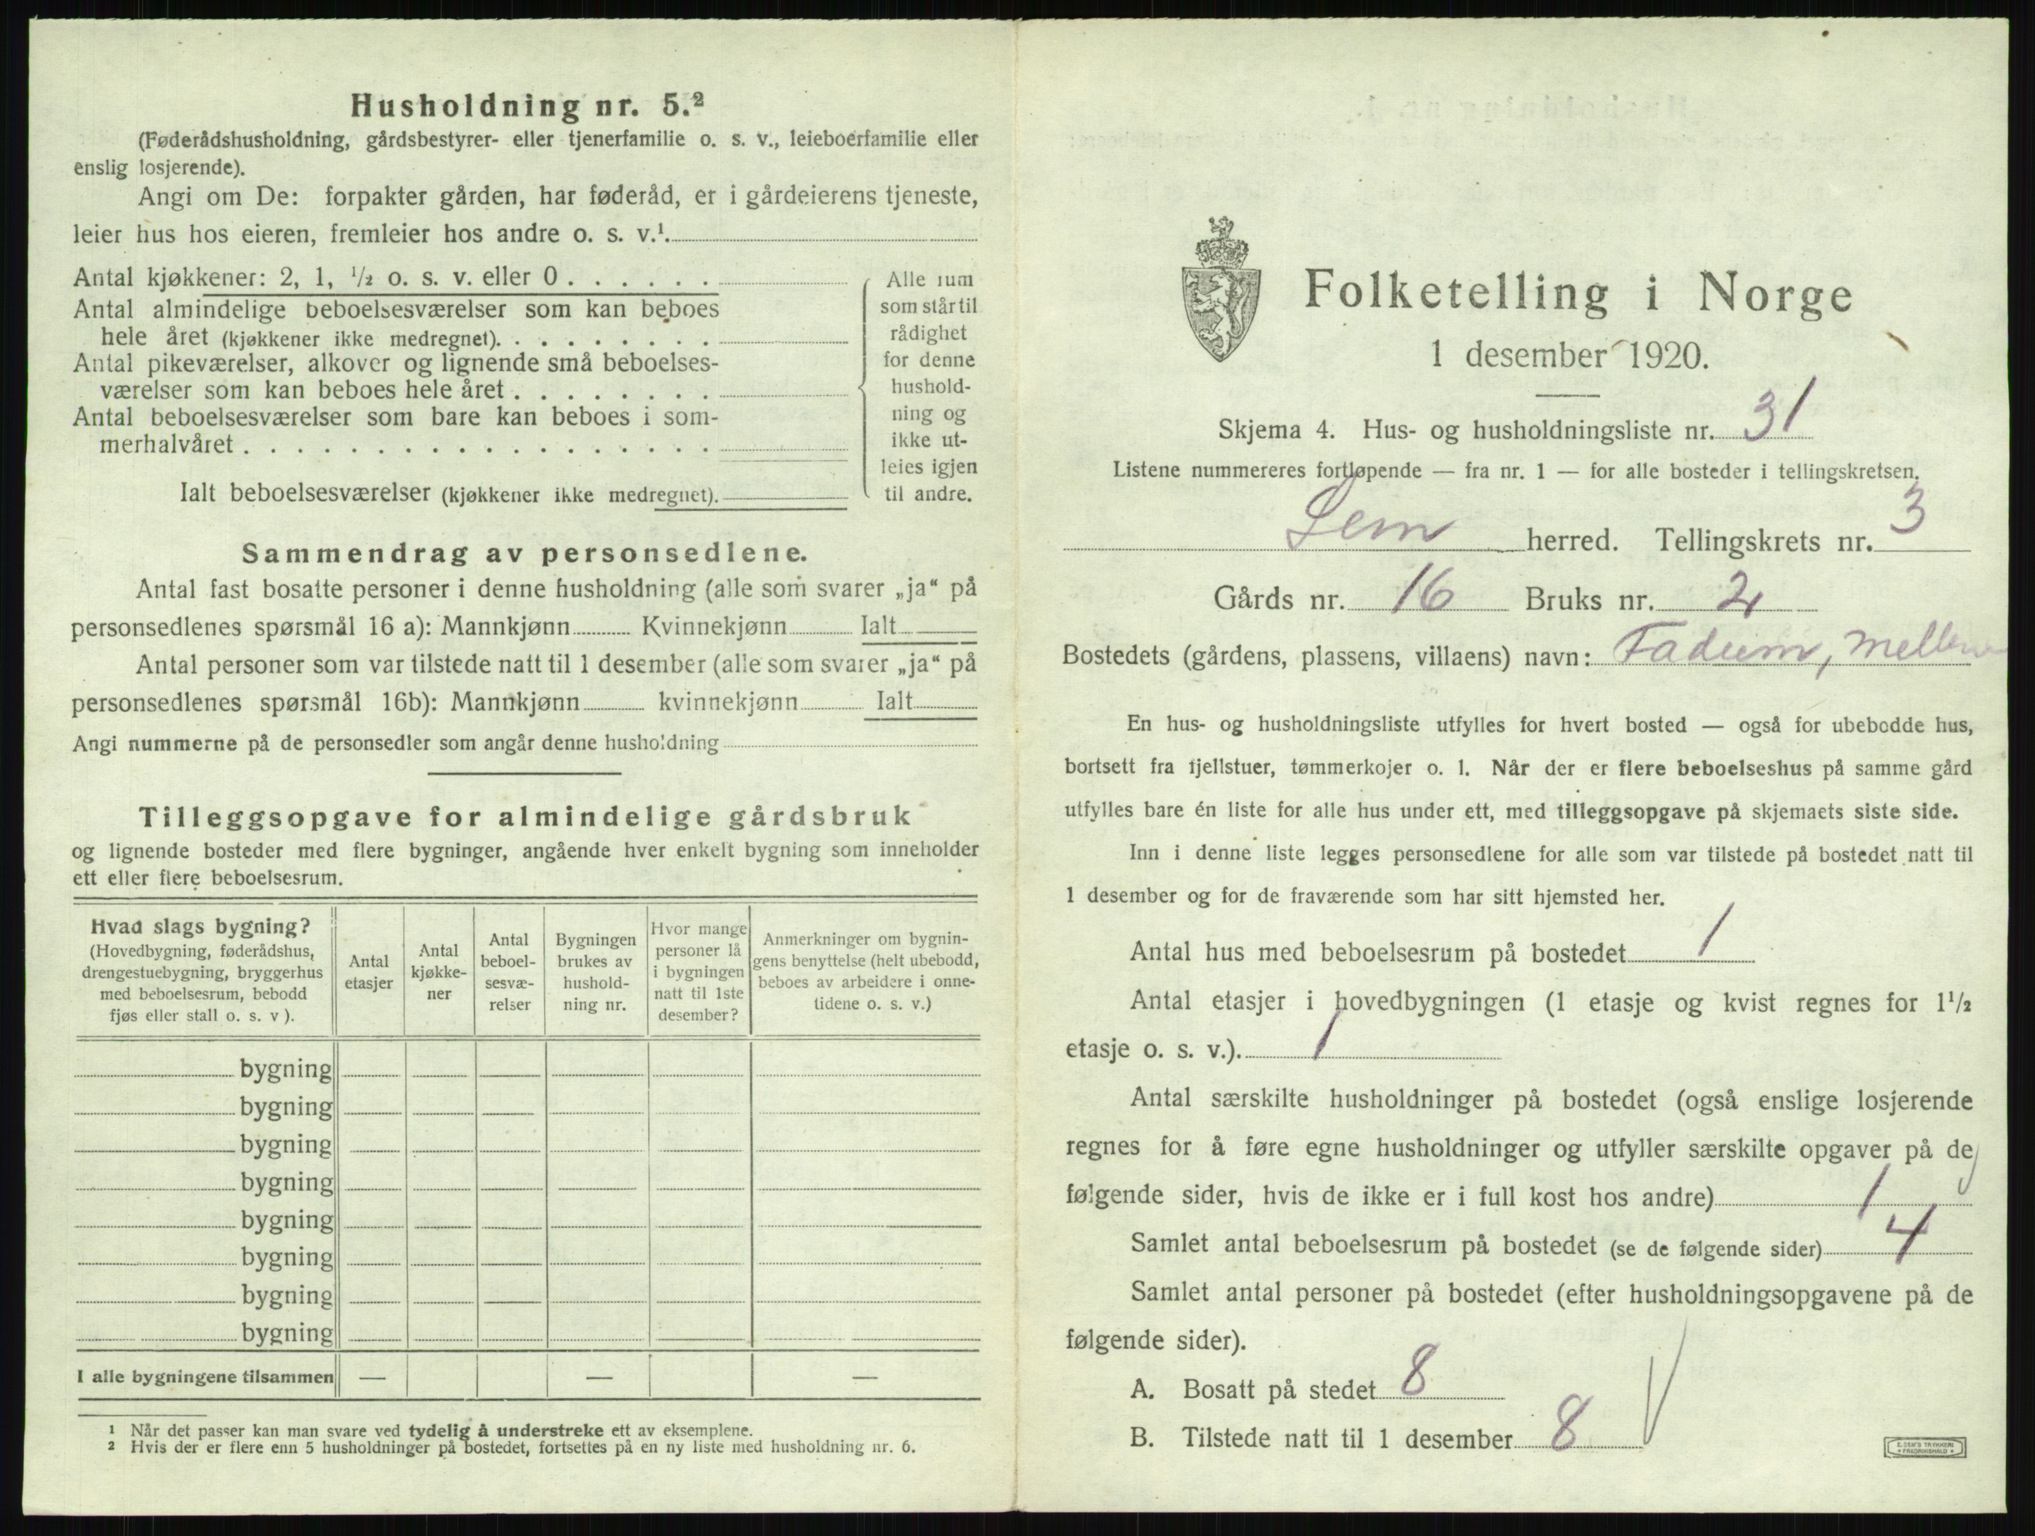 Husholdning nr. 5.²
(Føderådshusholdning, gårdsbestyrer- eller tjenerfamilie o. s. v., leieboerfamilie eller
enslig losjerende).
Angi om De: forpakter gården, har føderåd, er i gårdeierens tjeneste,
leier hus hos eieren, fremleier hos andre o. s. v.¹.
Antal kjøkkener: 2, 1, ½ o. s. v. eller 0 . . . . . .
Antal almindelige beboelsesværelser som kan beboes
hele året (kjøkkener ikke medregnet). . . . . . . . .
Antal pikeværelser, alkover og lignende små beboelses-
værelser som kan beboes hele året . . . . . . . .
Antal beboelsesværelser som bare kan beboes i som-
merhalvåret . . . . . . . . . . . . . . . . . .
Ialt beboelsesværelser (kjøkkener ikke medregnet).
Alle rum
som står til
rådighet
for denne
hushold-
ning og
ikke ut-
leies igjen
til andre.
Sammendrag av personsedlene.
Antal fast bosatte personer i denne husholdning (alle som svarer „ja“ på
personsedlenes spørsmål 16 a): Mannkjønn Kvinnekjønn Ialt
Antal personer som var tilstede natt til 1 desember (alle som svarer „ja“ på
personsedlenes spørsmål 16b): Mannkjønn kvinnekjønn Ialt
Angi nummerne på de personsedler som angår denne husholdning
Tilleggsopgave for almindelige gårdsbruk
og lignende bosteder med flere bygninger, angående hver enkelt bygning som inneholder
ett eller flere beboelsesrum.
Hvad slags bygning?
(Hovedbygning, føderådshus,
drengestuebygning, bryggerhus
med beboelsesrum, bebodd
fjøs eller stall o. s. v ).
Antal
etasjer
Antal
kjøkke-
ner
Antal
beboel-
sesvæ-
relser
Bygningen
brukes av
hushold-
ning nr.
Hvor mange
personer lå
i bygningen
natt til 1ste
desember?
Anmerkninger om bygnin-
gens benyttelse (helt ubebodd,
beboes av arbeidere i onne-
tidene o. s. v.)
bygning
bygning
bygning
bygning
bygning
bygning
bygning
bygning
I alle bygningene tilsammen — — —
¹ Når det passer kan man svare ved tydelig å understreke ett av eksemplene.
² Hvis der er flere enn 5 husholdninger på bostedet, fortsettes på en ny liste med husholdning nr. 6.
Folketelling i Norge
1 desember 1920.
Skjema 4. Hus- og husholdningsliste nr. 31
Listene nummereres fortløpende — fra nr. 1 — for alle bosteder i tellingskretsen.
Sem herred. Tellingskrets nr. 3
Gårds nr. 16 Bruks nr. 2
Bostedets (gårdens, plassens, villaens) navn: Fadum, mellem
En hus- og husholdningsliste utfylles for hvert bosted — også for ubebodde hus,
bortsett fra fjellstuer, tømmerkojer o. l. Når der er flere beboelseshus på samme gård
utfylles bare én liste for alle hus under ett, med tilleggsopgave på skjemaets siste side.
Inn i denne liste legges personsedlene for alle som var tilstede på bostedet natt til
1 desember og for de fraværende som har sitt hjemsted her.
Antal hus med beboelsesrum på bostedet 1
Antal etasjer i hovedbygningen (1 etasje og kvist regnes for 1½
etasje o. s. v.). 1
Antal særskilte husholdninger på bostedet (også enslige losjerende
regnes for å føre egne husholdninger og utfyller særskilte opgaver på de
følgende sider, hvis de ikke er i full kost hos andre) 1
Samlet antal beboelsesrum på bostedet (se de følgende sider) 4
Samlet antal personer på bostedet (efter husholdningsopgavene på de
følgende sider).
A. Bosatt på stedet 8
B. Tilstede natt til 1 desember 8